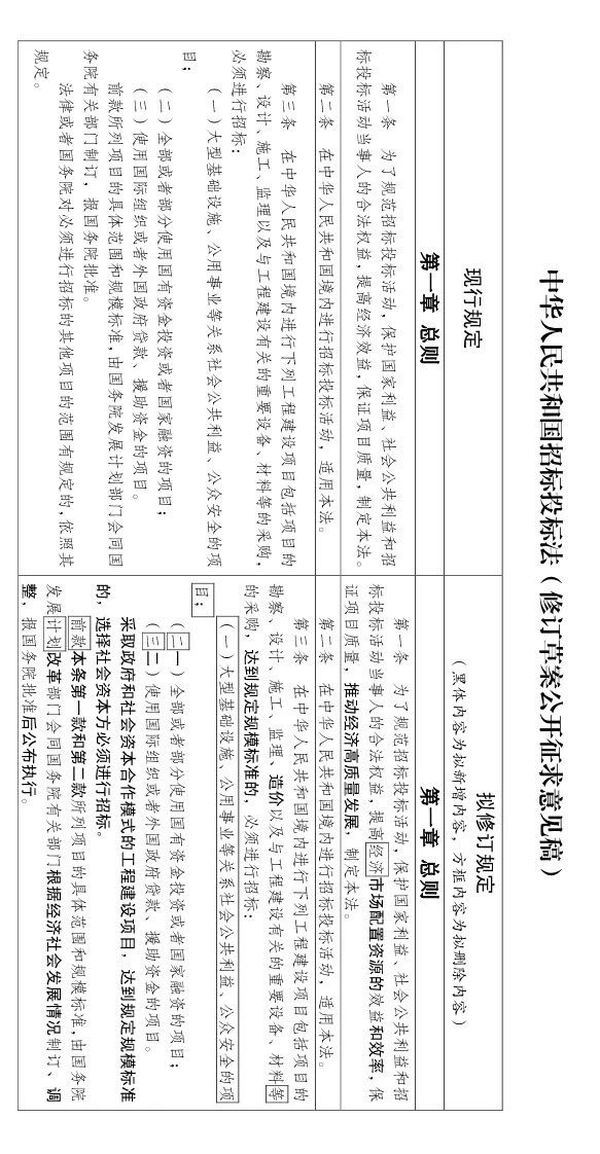 中华人民共和国招标投标法（修订草案公开征求意见稿）
现行规定
第一章 总则
第一条 为了规范招标投标活动，保护国家利益、社会公共利益和招
标投标活动当事人的合法权益，提高经济效益，保证项目质量，制定本法。
第二条 在中华人民共和国境内进行招标投标活动，适用本法。
第三条 在中华人民共和国境内进行下列工程建设项目包括项目的
勘察、设计、施工、监理以及与工程建设有关的重要设备、材料等的采购，
必须进行招标：
（一）大型基础设施、公用事业等关系社会公共利益、公众安全的项
目；
（二）全部或者部分使用国有资金投资或者国家融资的项目；
（三）使用国际组织或者外国政府贷款、援助资金的项目。
前款所列项目的具体范围和规模标准，由国务院发展计划部门会同国
务院有关部门制订，报国务院批准。
法律或者国务院对必须进行招标的其他项目的范围有规定的，依照其
规定。
拟修订规定
（黑体内容为拟新增内容，方框内容为拟删除内容）
第一章 总则
第一条 为了规范招标投标活动，保护国家利益、社会公共利益和招
标投标活动当事人的合法权益，提高经济市场配置资源的效益和效率，保
证项目质量，推动经济高质量发展，制定本法。
第二条 在中华人民共和国境内进行招标投标活动，适用本法。
第三条 在中华人民共和国境内进行下列工程建设项目包括项目的
勘察、设计、施工、监理、造价以及与工程建设有关的重要设备、材料等
的采购，达到规定规模标准的，必须进行招标：
（一）大型基础设施、公用事业等关系社会公共利益、公众安全的项
目；
（二一）全部或者部分使用国有资金投资或者国家融资的项目；
（三二）使用国际组织或者外国政府贷款、援助资金的项目。
采取政府和社会资本合作模式的工程建设项目，达到规定规模标准
的，选择社会资本方必须进行招标。
前款本条第一款和第二款所列项目的具体范围和规模标准，由国务院
发展计划改革部门会同国务院有关部门根据经济社会发展情况制订、调
整，报国务院批准后公布执行。